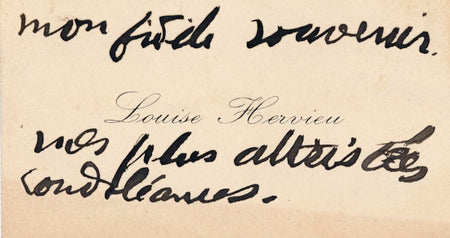 mon fidèle souvenir.
Louise Hervieu
mes plus attristées
condoléances.